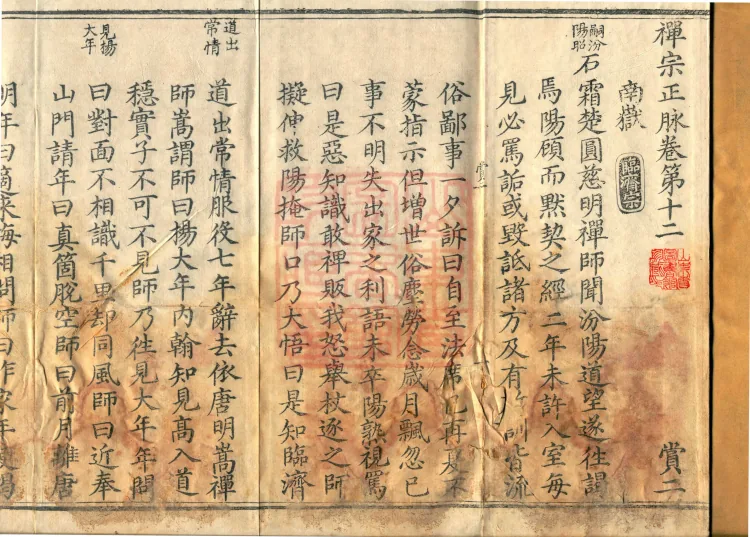 禪宗正脉卷第十二　賞二
南嶽　臨濟宗
嗣汾陽昭
石霜楚圓慈明禪師聞汾陽道望遂往謁
焉陽顧而默契之經二年未許入室每
見必罵詬或毀詆諸方及有所訓皆流
賞一
俗鄙事一夕訴曰自至法席已再夏不
蒙指示但增世俗塵勞念歲月飄忽已
事不明失出家之利語未卒陽熟視罵
曰是惡知識敢裨販我怒舉杖逐之師
擬伸救陽掩師口乃大悟曰是知臨濟
道出常情
道出常情服役七年辭去依唐明嵩禪
師嵩謂師曰楊大年內翰知見高入道
穩實子不可不見師乃往見大年年問
見楊大年
曰對面不相識千里却同風師曰近奉
山門請年曰真箇脫空師曰前月離唐
明年曰適來悔相問師曰作家年